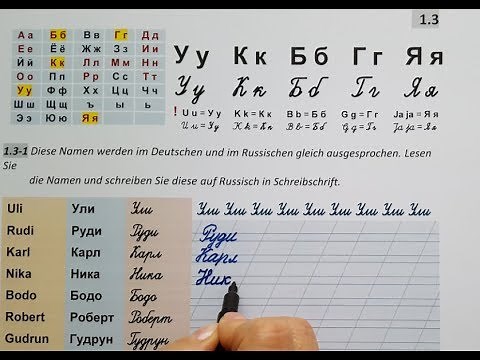 1.3
Аа Бб Вв Гг Дд
Ее Ёё Жж Зз Ии
Йй Кк Лл Мм Нн
Оо Пп Рр Сс Тт
Уу Фф Хх Цц Чч
Шш Щщ ъ ы ь
Ээ Юю Яя
Уу Кк Бб Гг Яя
Уу Кк Бб Гг Яя
! Uu = Уу Kk = Кк Bb = Бб Gg = Гг Jaja = Яя
Uu = Уу Kk = Кк Bb = Бб Gg = Гг Jaja = Яя
1.3-1 Diese Namen werden im Deutschen und im Russischen gleich ausgesprochen. Lesen
Sie
die Namen und schreiben Sie diese auf Russisch in Schreibschrift.
Uli Ули Ули Ули Ули Ули Ули Ули Ули Ули Ули Ули
Rudi Руди Руди Руди
Karl Карл Карл Карл
Nika Ника Ника Ник
Bodo Бодо Бодо
Robert Роберт Роберт
Gudrun Гудрун Гудрун